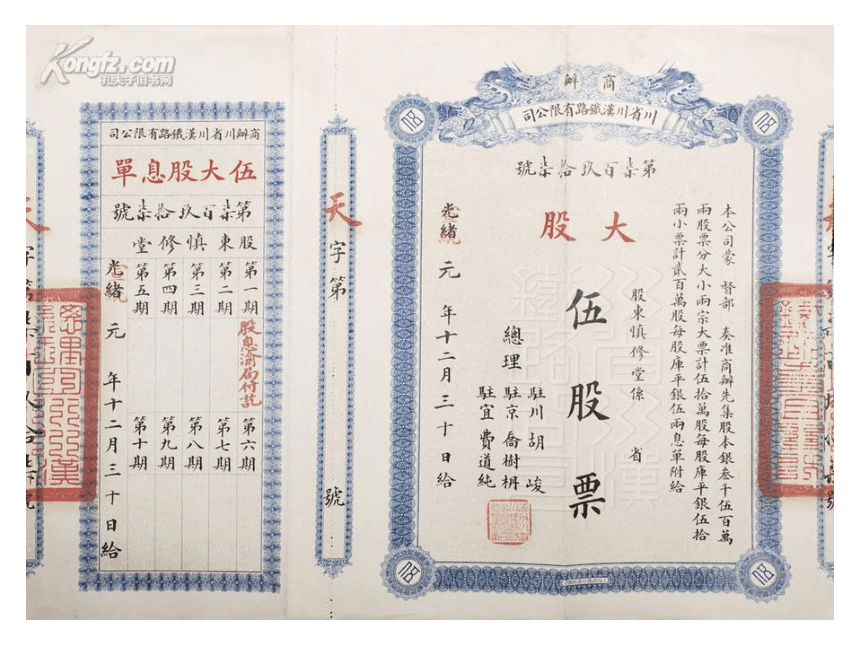 Kongfz.com
孔夫子旧书网
商辦
川省川漢鐵路有限公司
第柒百玖拾柒號
大股
本公司蒙 督部 奏准商辦先集股本銀叁千伍百萬
兩股票分大小兩宗大票計伍拾萬股每股庫平銀伍拾
兩小票計貳百萬股每股庫平銀伍兩息單附給
股東慎修堂係 省
伍股票
總理
駐川 胡峻
駐京 喬樹枬
駐宜 費道純
光緒元年十二月三十日給
天字第 號
商辦川省川漢鐵路有限公司
伍大股息單
第柒百玖拾柒號
股東慎修堂
第一期
第二期
第三期
第四期
第五期
股息渝局付訖
第六期
第七期
第八期
第九期
第十期
光緒元年十二月三十日給